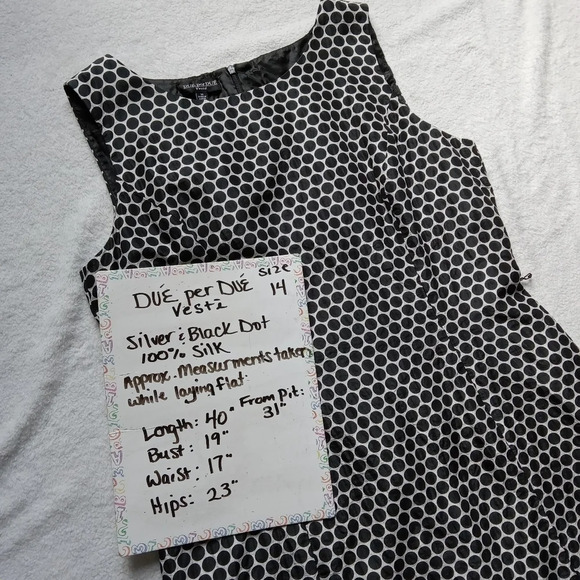 DUÉ PER DUÉ
DUÉ per DUÉ
Vesti
size
14
Silver & Black Dot
100% Silk
Approx. Measurments taken
while laying flat:
Length: 40"
From Pit:
31"
Bust: 19"
Waist: 17"
Hips: 23"